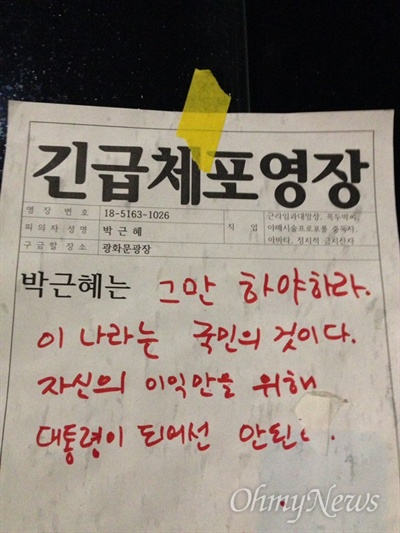 긴급체포영장
영 장 번 호 18-5163-1026
피의자성명 박 근 혜
구금할 장소 광화문광장
직 업
근라임과대망상, 폭두박씨,
야매시술프로포폴 중독자,
아바타, 정치적 금치산자
박근혜는 그만 하야하라.
이 나라는 국민의 것이다.
자신의 이익만을 위해
대통령이 되어선 안된
OhmyNews